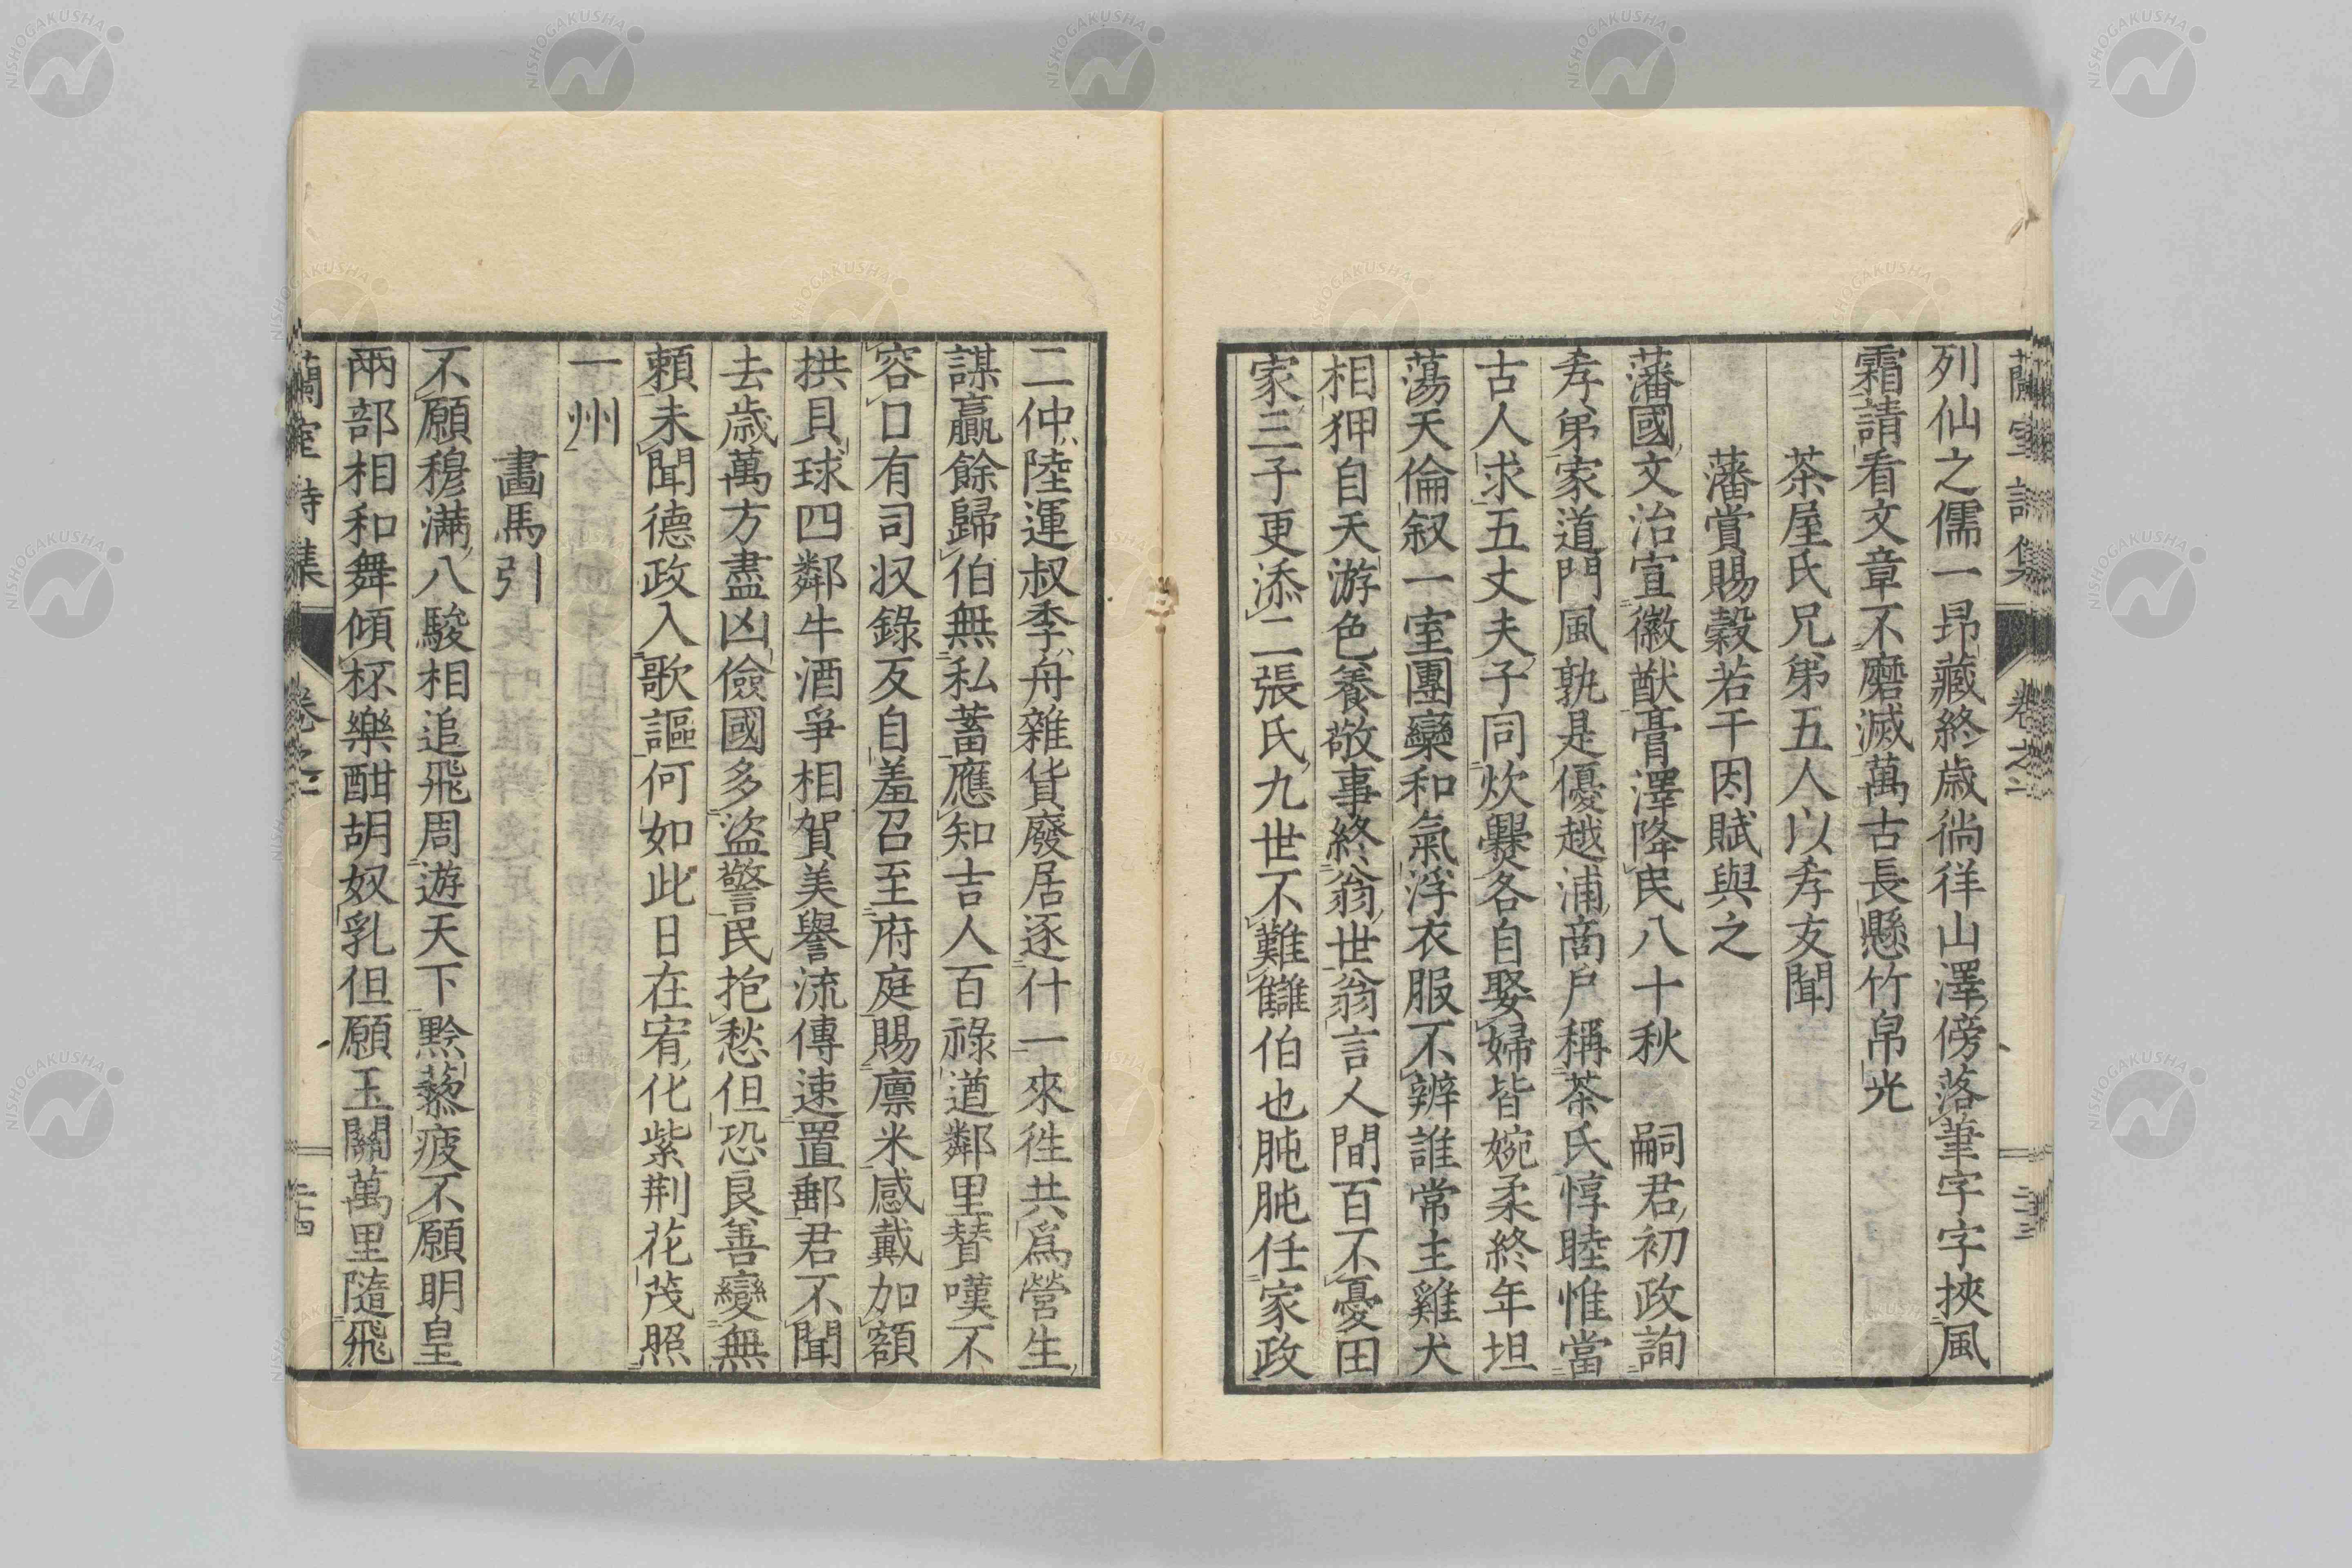 列仙之儒一昂藏終歳徜徉山澤傍落筆字字挾風
霜請看文章不磨滅萬古長懸竹帛光
茶屋氏兄弟五人以孝友聞
藩賞賜穀若干因賦與之
藩國文治宣徽猷膏澤降民八十秋 嗣君初政詢
孝弟家道門風孰是優越浦商戶稱茶氏惇睦惟當
古人求五丈夫子同炊爨各自娶婦皆婉柔終年坦
蕩天倫叙一室團欒和氣浮衣服不辨誰常主雞犬
相狎自天游色養敬事終翁世翁言人間百不憂田
家三子更添二張氏九世不難讎伯也肫肫任家政
二仲陸運叔季舟雜貨廢居逐什一來往共爲營生
謀贏餘歸伯無私蓄應知吉人百祿遒鄰里賛嘆不
容口有司収錄反自羞召至府庭賜廪米感戴加額
拱貝球四鄰牛酒爭相賀美譽流傳速置郵君不聞
去歳萬方盡凶儉國多盜警民抱愁但恐良善變無
賴未聞德政入歌謳何如此日在宥化紫荆花茂照
一州
畫馬引
不願穆滿八駿相追飛周遊天下黔藜疲不願明皇
兩部相和舞傾杯樂酣胡奴乳但願玉關萬里隨飛
蘭室詩集 卷之二 二十四